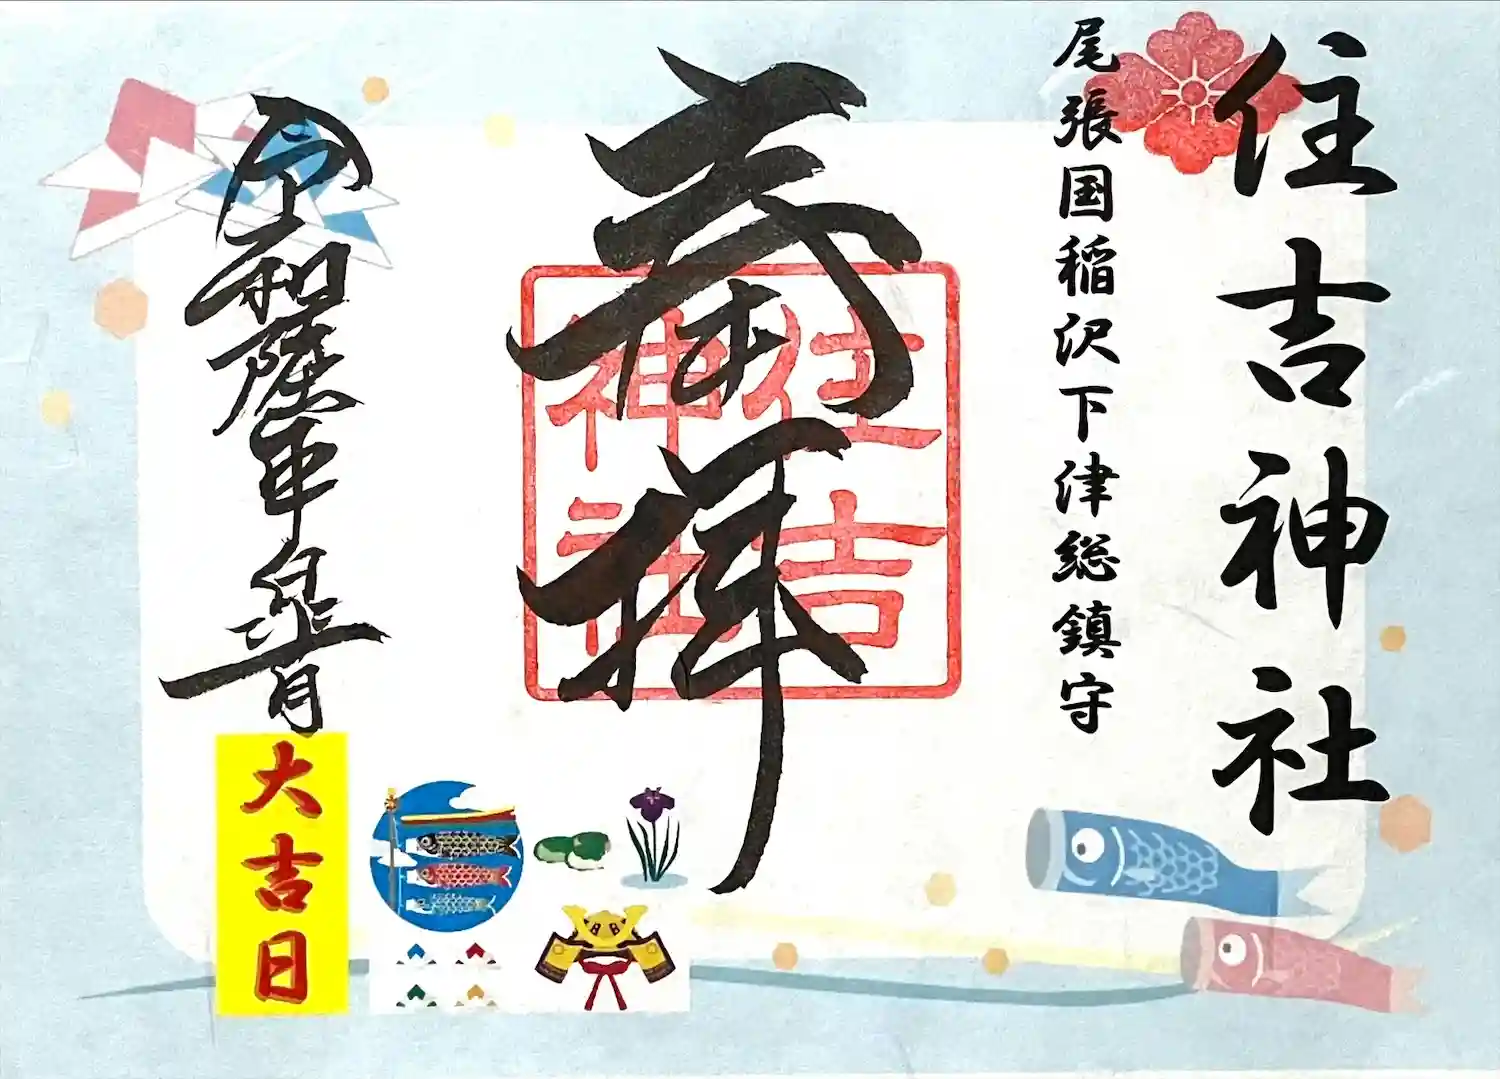 住吉神社
尾張国稲沢下津総鎮守
奉拝
住吉
神社
令和陸年皐月
大吉日